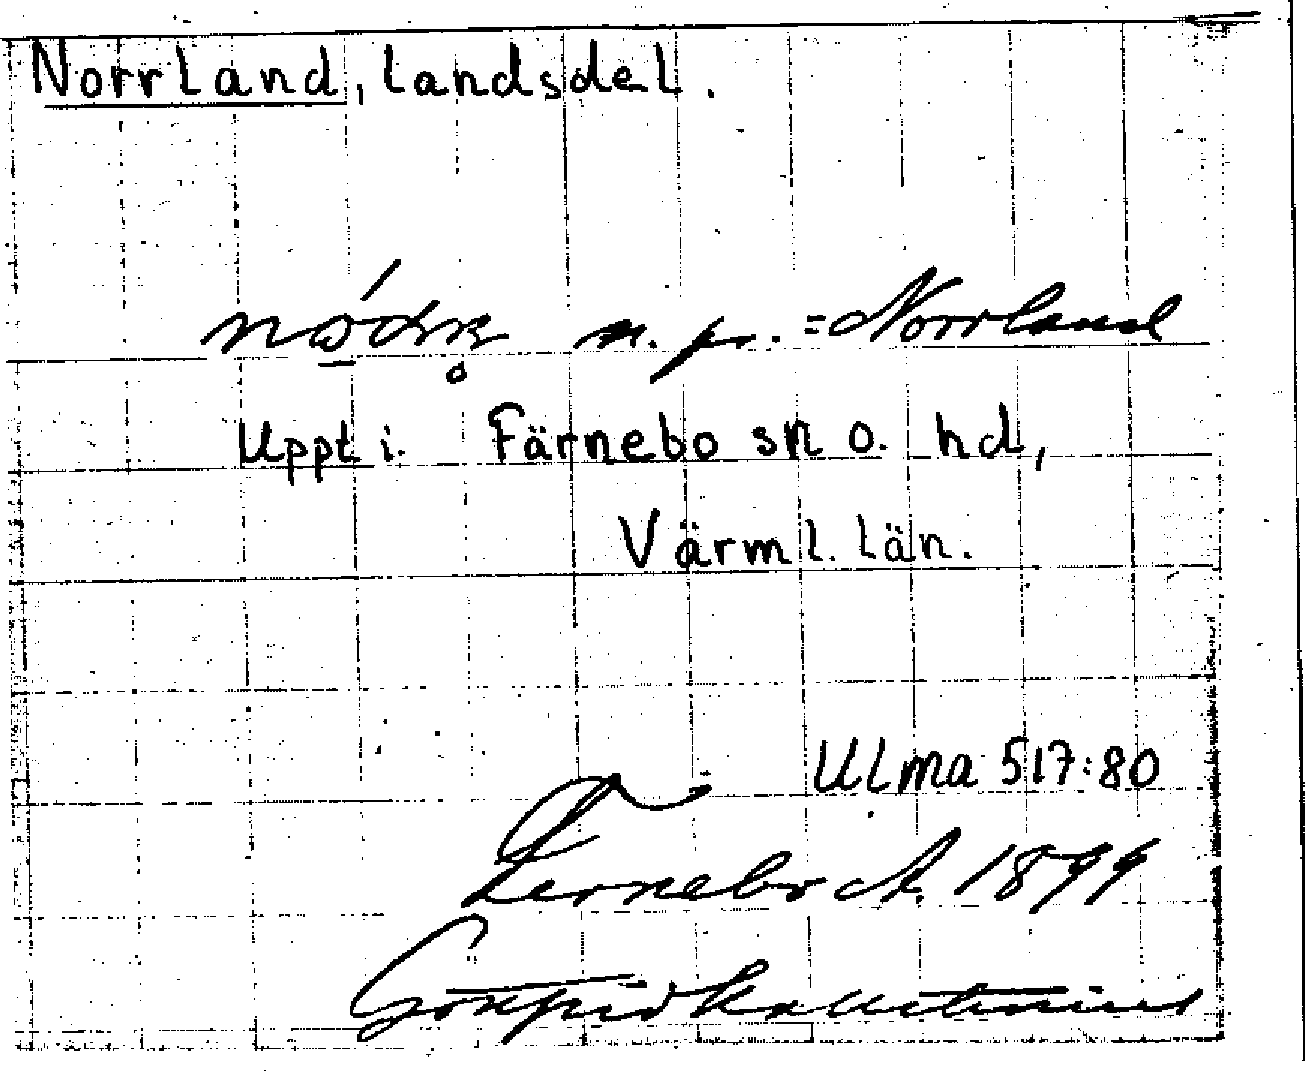 Norrland, landsdel.
n. pr. = Norrland
Uppt i. Färnebo sn o. hd,
Värml. län.
Ulma 517:80
Fernebo A. 1899
Gottfrid Kallstenius